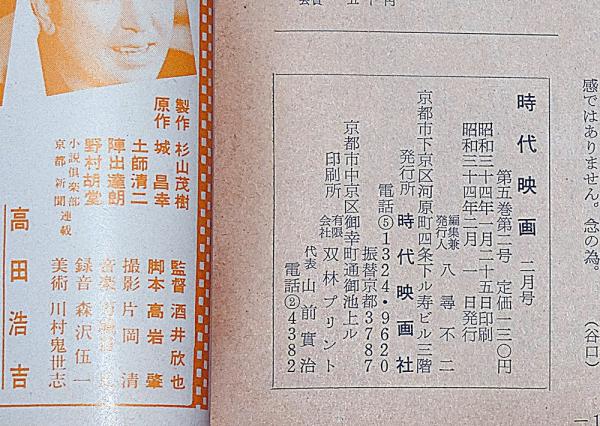 感ではありません。念の為。
（谷口）
時代映画 二月号
第五巻第二号 定価一三〇円
昭和三十四年一月二十五日印刷
昭和三十四年二月 一 日発行
編集兼発行人 八尋不二
京都市下京区河原町四条下ル寿ビル三階
発行所 時代映画社
電話⑤1324・9620
振替京都3787
京都市中京区御幸町通御池上ル
印刷所 有限会社 双林プリント
代表 山前實治
電話②4382
製作 杉山茂樹
原作 城昌幸
土師清二
陣出達朗
野村胡堂
小説倶楽部 連載
京都新聞
監督 酒井欣也
脚本 高岩肇
撮影 片岡清
音楽
録音 森沢伍一
美術 川村鬼世志
高田浩吉